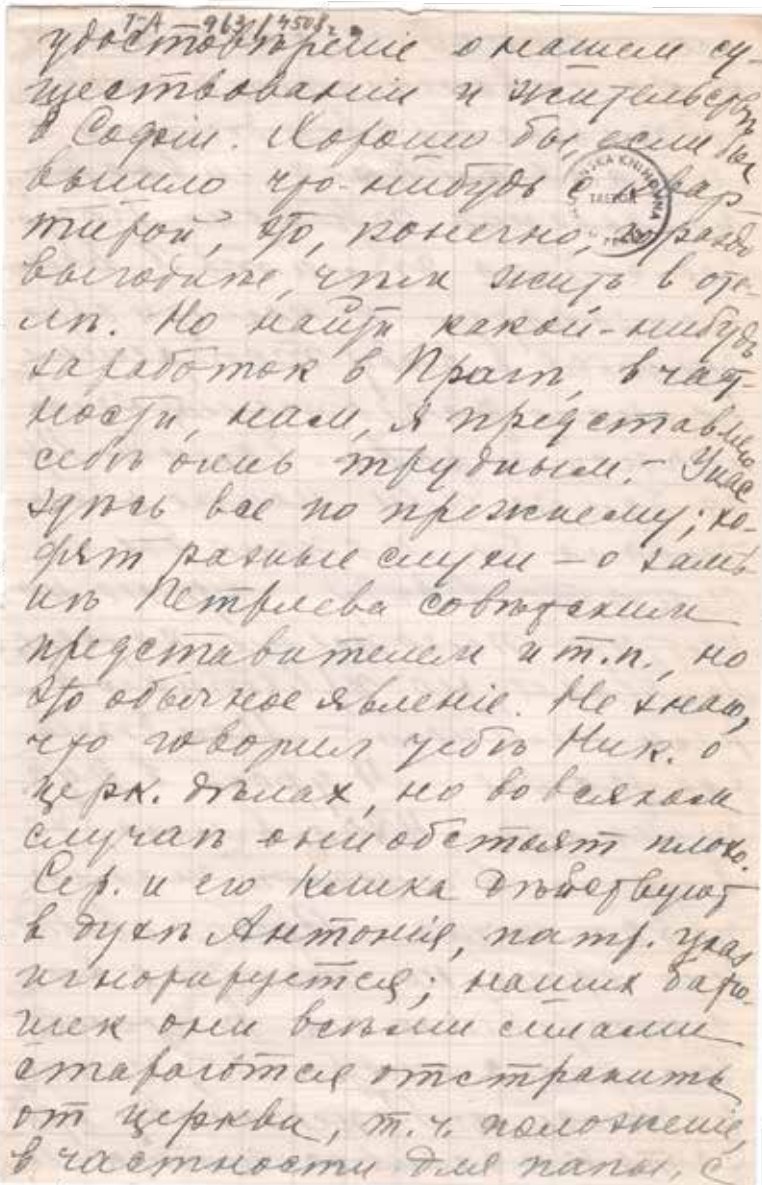 T-A 963/4508
удостовѣренie о нашем су-
ществовании и жительствѣ
в Софіи. Хорошо бы, если бы
вышло что-нибудь с квар-
тирой, это, конечно, гораздо
выгоднѣе, чѣм жить в оте-
лѣ. Но найти какой-нибудь
заработок в Прагѣ, в част-
ности, нам, я представляю
себѣ очень трудным. – У нас
здѣсь все по прежнему; хо-
дят разные слухи – о замѣ-
нѣ Петряева совѣтским
представителем и т.п., но
это обычное явленіе. Не знаю,
что говорил тебѣ Ник. о
церк. дѣлах, но во всяком
случаѣ они обстоят плохо.
Сер. и его клика дѣйствуют
в духѣ Антонія, патр. указ
игнорируется; наших батю-
шек они всѣми силами
стараются отстранить
от церкви, т.ч. положеніе,
в частности для папы, с